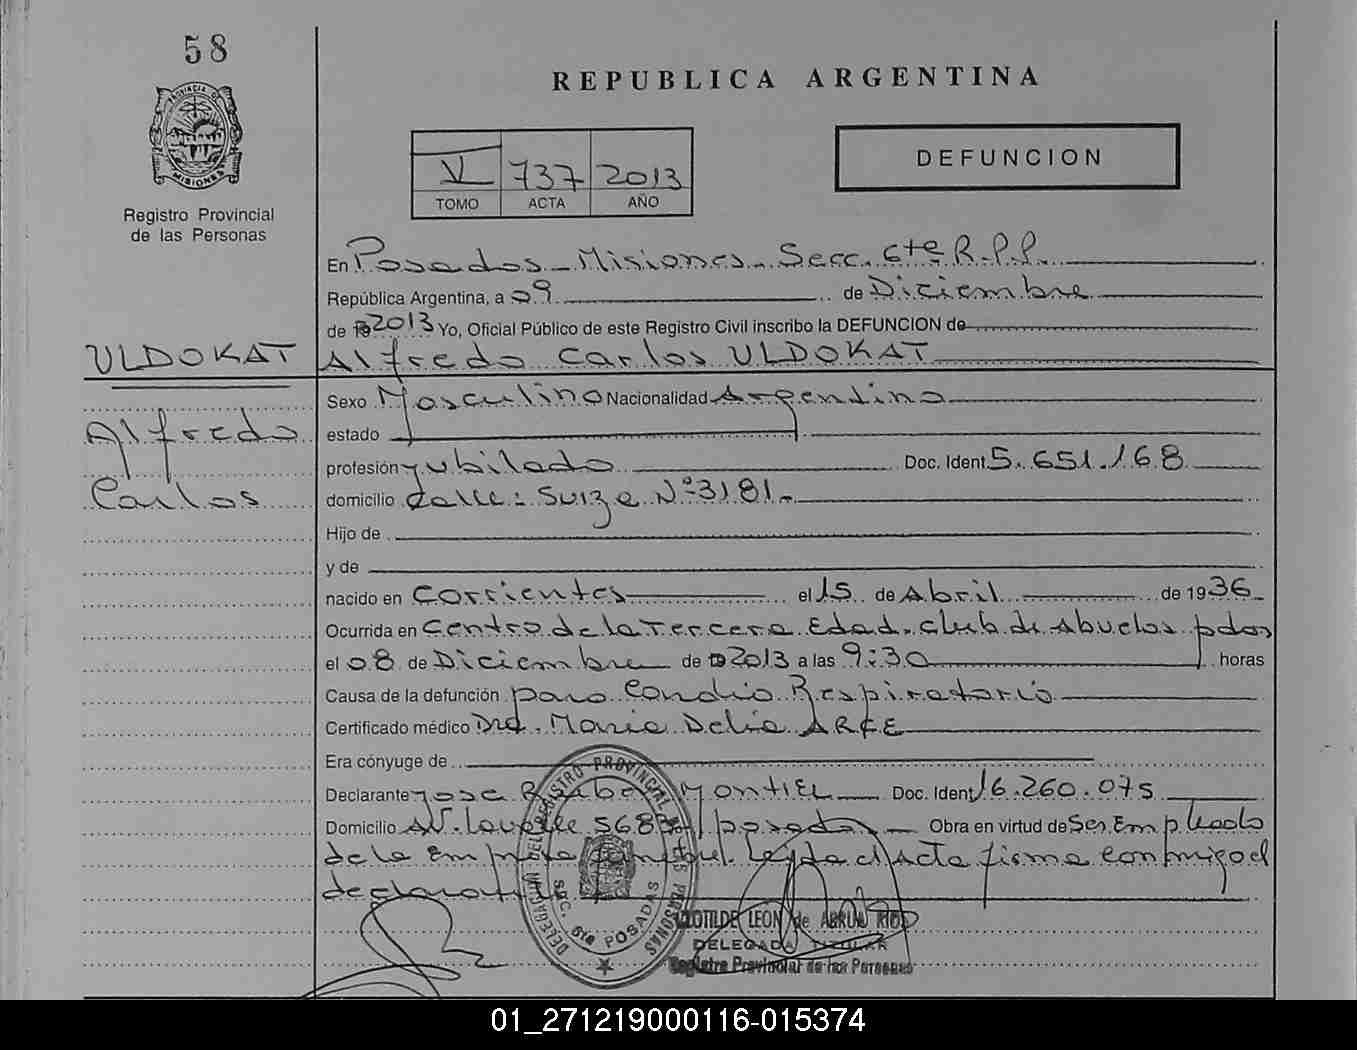 58
PROVINCIA DE
MISIONES
Registro Provincial
de las Personas
REPUBLICA ARGENTINA
V 737 2013
TOMO ACTA AÑO
DEFUNCION
En Posadas - Misiones - Secc. 6te R.P.P.
República Argentina, a 09 de Diciembre
de 19 2013 Yo, Oficial Público de este Registro Civil inscribo la DEFUNCION de
ULDOKAT
Alfredo Carlos ULDOKAT
Alfredo
Carlos
Sexo Masculino Nacionalidad Argentina
estado
profesión jubilado Doc. Ident. 5.651.168
domicilio calle: Suiza Nº 3181.-
Hijo de
y de
nacido en Corrientes el 15 de Abril de 1936
Ocurrida en Centro de la Tercera Edad. Club de Abuelos pdas
el 08 de Diciembre de 19 2013 a las 9:30 horas
Causa de la defunción paro Cardio Respiratorio
Certificado médico Dra. Maria Delia ARCE
Era cónyuge de
Declarante Jose MONTIEL Doc. Ident. 16.260.075
Domicilio AV. Lavalle posadas Obra en virtud de Ser Empleado
de la Empresa Leyda el Acta firma conmigo el
declarante
DELEGACION DEL REGISTRO PROVINCIAL DE LAS PERSONAS
SEC. 6ta POSADAS
CLOTILDE LEON de ABRUA RIOS
DELEGADA TITULAR
Registro Provincial de las Personas
01_271219000116-015374